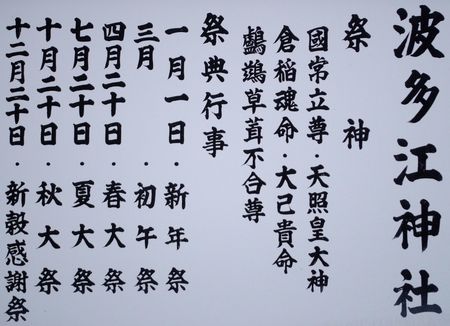 波多江神社
祭神
国常立尊・天照皇大神
倉稲魂命・大己貴命
鸕鷀草葺不合尊
祭典行事
一月一日・新年祭
三月・初午祭
四月二十日・春大祭
七月二十日・夏大祭
十月二十日・秋大祭
十二月二十日・新穀感謝祭